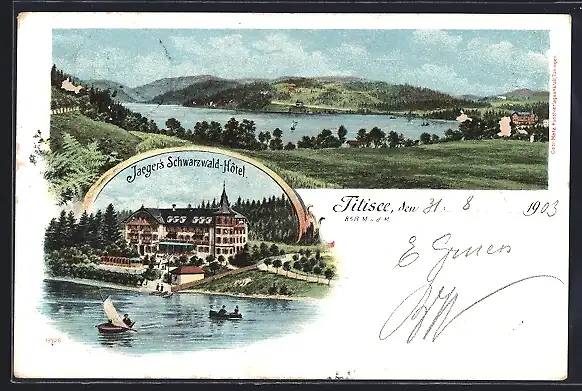 Jaeger's Schwarzwald-Hôtel
Titisee, den 31. 8 1903
858 M. ü. d. M.
E Gruess
Gebr. Metz, Kunstverlagsanstalt, Tübingen